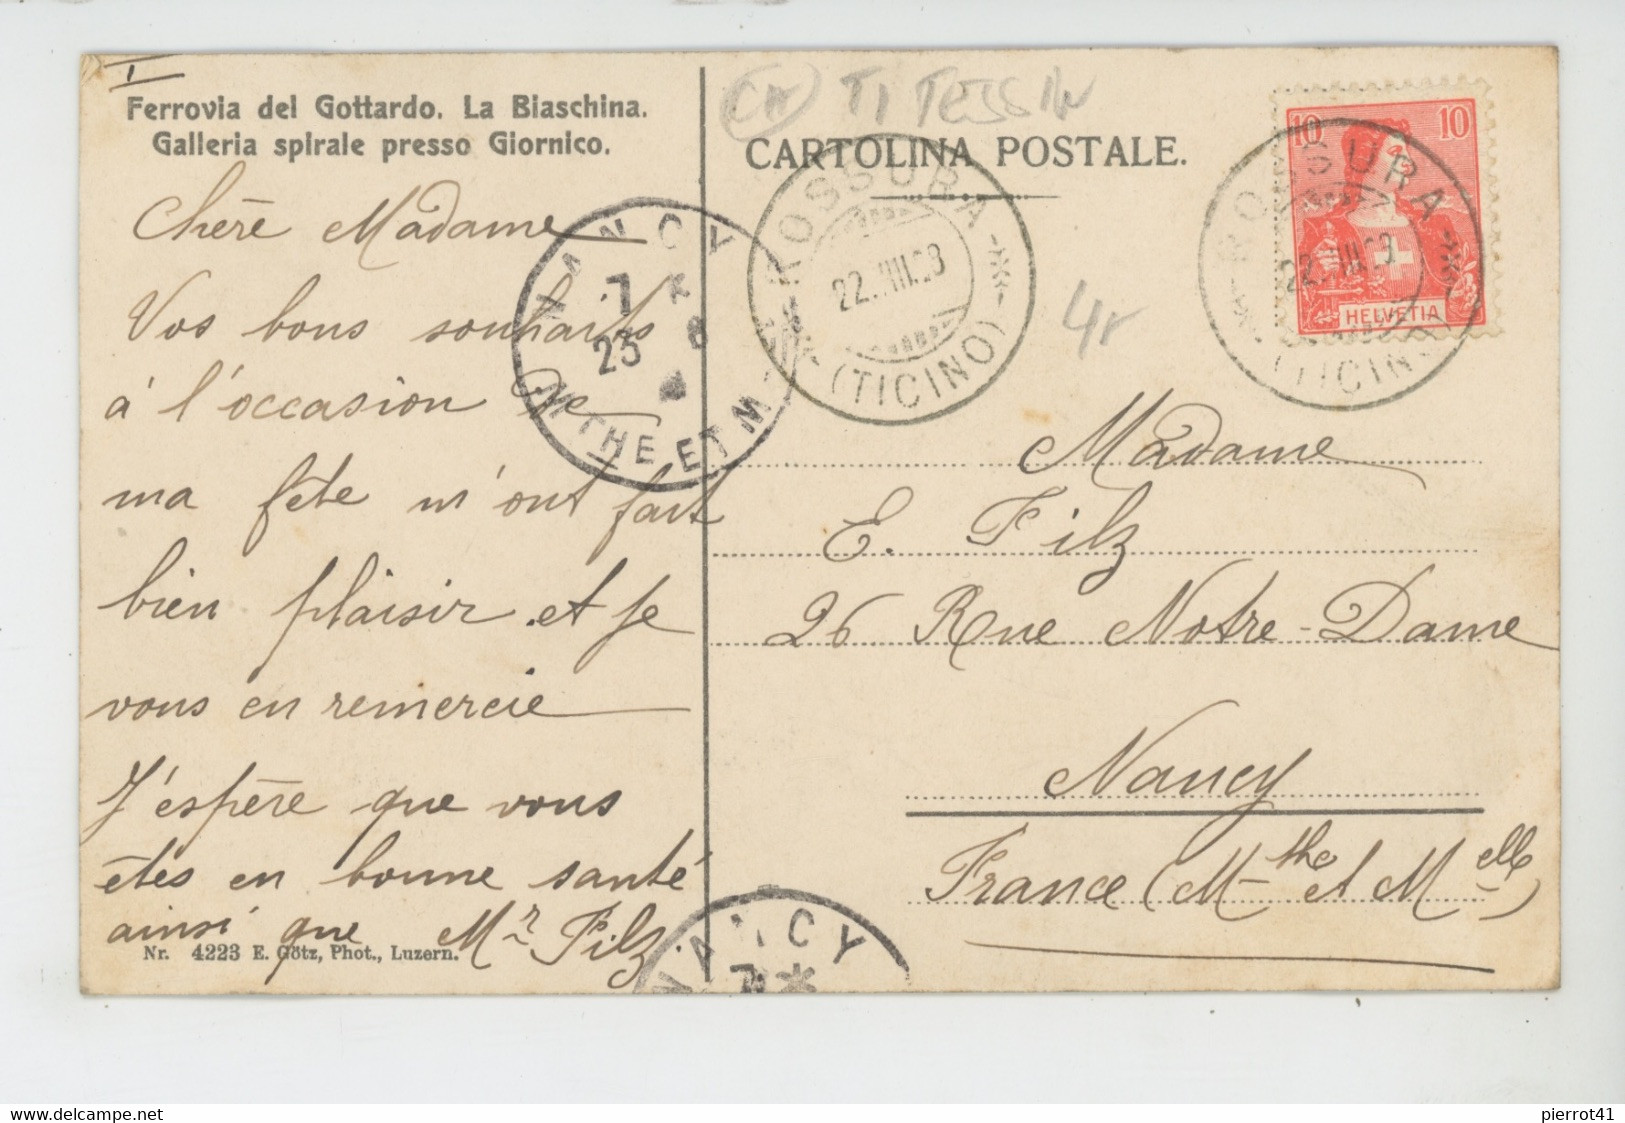 I
Ferrovia del Gottardo. La Biaschina.
Galleria spirale presso Giornico.
Chère Madame
Vos bons souhaits
à l'occasion de
ma fête m'ont fait
bien plaisir et je
vous en remercie
J'espère que vous
êtes en bonne santé
ainsi que Mr Filz.
Nr. 4223 E. Götz, Phot., Luzern.
(CH) TI TESSIN
CARTOLINA POSTALE.
10 10
HELVETIA
ROSSURA
22.VIII.08
(TICINO)
ROSSURA
22.VIII.08
(TICINO)
NANCY
23 8
MTHE ET M
4r
Madame
E. Filz
26 Rue Notre-Dame
Nancy
France (M-the et M-elle)
NANCY
pierrot41